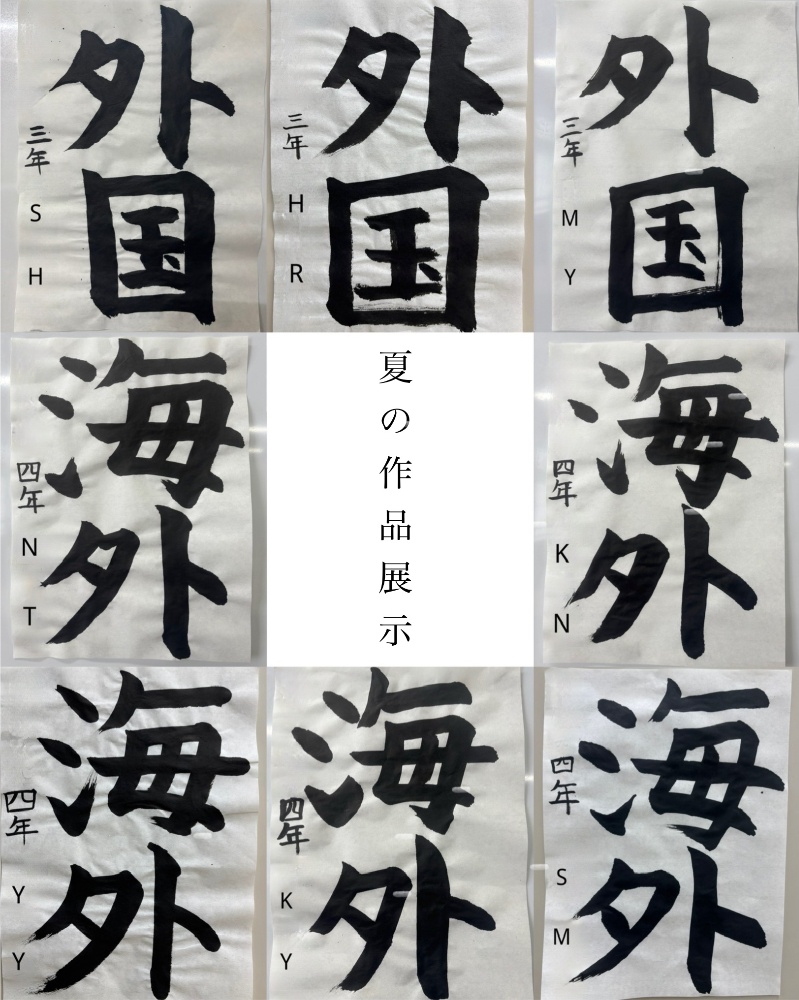 外国
三年
S
H
外国
三年
H
R
外国
三年
M
Y
海外
四年
N
T
夏の作品展示
海外
四年
K
N
海外
四年
Y
Y
海外
四年
K
Y
海外
四年
S
M